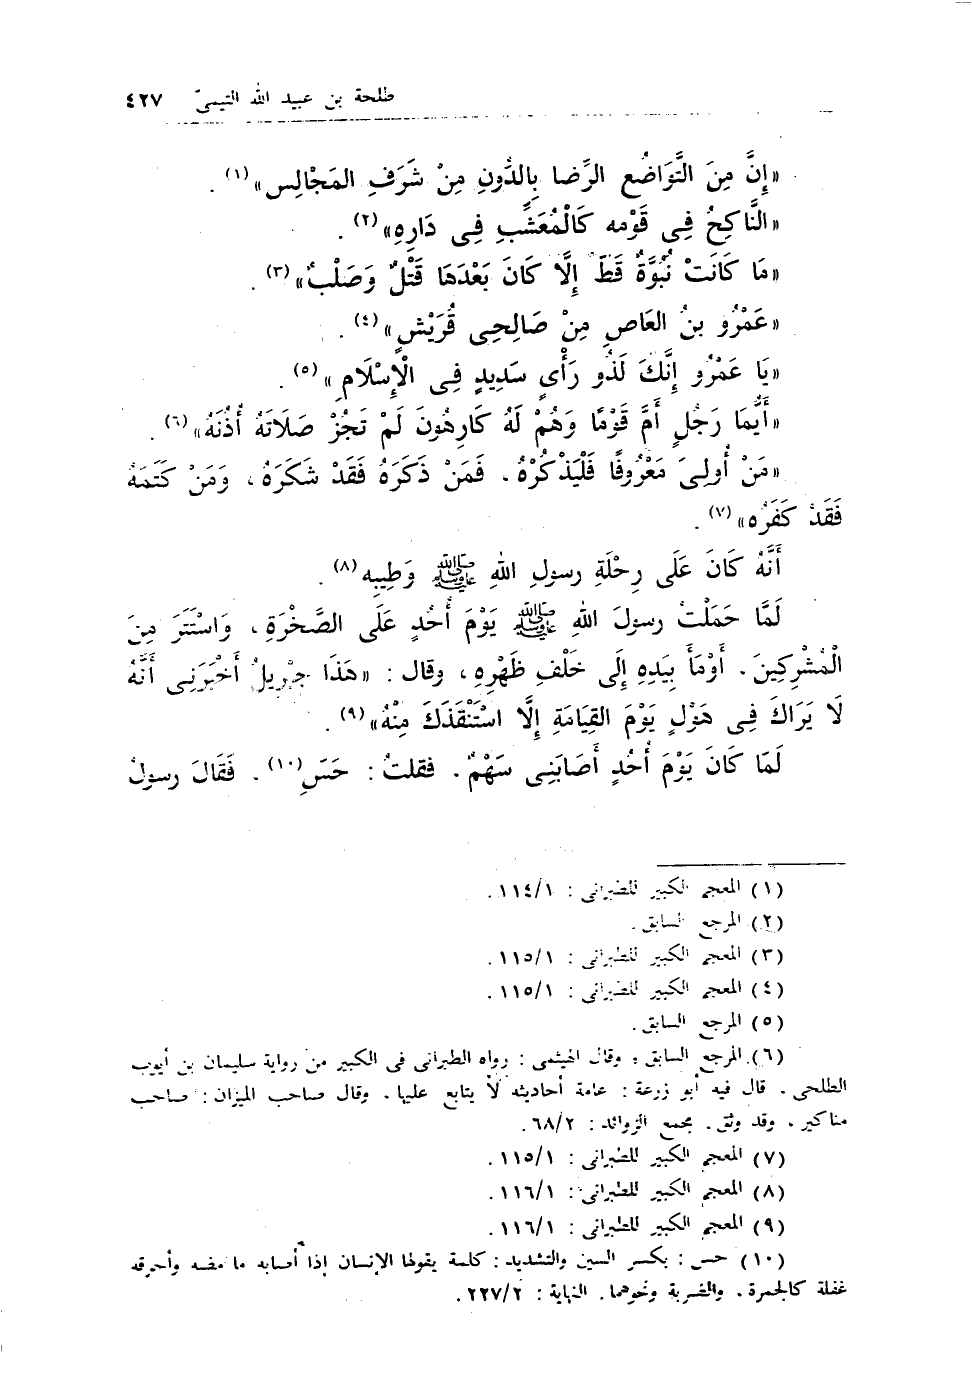 طلحة بن عبيد الله التيميّ ٤٢٧
«إِنَّ مِنَ التَّوَاضُعِ الرِّضا بِالدُّونِ مِنْ شَرَفِ المَجْالِسِ»(١).
«النَّاكِحُ فِى قَوْمِه كَالْمُعَشِّبِ فِى دَارِهِ»(٢).
«مَا كَانَتْ نُبُوَّةٌ قَطّ إِلَّا كَانَ بَعْدَهَا قَتْلٌ وَصَلْبٌ»(٣).
«عَمْرُو بنُ العَاصِ مِنْ صَالِحِى قُرَيْشٍ»(٤).
«يَا عَمْرُو إِنَّكَ لَذُو رَأْىٍ سَدِيدٍ فِى الْإِسْلَامِ»(٥).
«أَيُّمَا رَجُلٍ أَمَّ قَوْمًا وَهُمْ لَهُ كَارِهُونَ لَمْ تَجُزْ صَلَاتَهُ أُذُنَهُ»(٦).
«مَنْ أُولِىَ مَعْرُوفًا فَلْيَذْكُرْهُ. فَمَنْ ذَكَرَهُ فَقَدْ شَكَرَهُ، وَمَنْ كَتَمَهُ
فَقَدْ كَفَرَه»(٧).
أَنَّهُ كَانَ عَلَى رِحْلَةِ رسولِ اللهِ ﷺ وَطِيبِه(٨).
لَمَّا حَمَلْتُ رسولَ اللهِ ﷺ يَوْمَ أُحُدٍ عَلَى الصَّخْرَةِ، وَاسْتَتَرَ مِنَ
الْمُشْرِكِينَ. أَوْمَأَ بِيَدِهِ إِلَى خَلْفِ ظَهْرِهِ، وقال: «هَذَا جِبْرِيلُ أَخْبَرَنِى أَنَّهُ
لَا يَرَاكَ فِى هَوْلِ يَوْمَ القِيَامَةِ إِلَّا اسْتَنْقَذَكَ مِنْهُ»(٩).
لَمَا كَانَ يَوْمَ أُحُدٍ أَصَابَنِى سَهْمٌ. فقلتُ: حَسَ(١٠). فَقَالَ رسولُ
(١) المعجم الكبير للطبرانى: ١١٤/١.
(٢) المرجع السابق.
(٣) المعجم الكبير للطبرانى: ١١٥/١.
(٤) المعجم الكبير للطبرانى: ١١٥/١.
(٥) المرجع السابق.
(٦) المرجع السابق، وقال الهيثمى: رواه الطبرانى فى الكبير من رواية سليمان بن أيوب
الطلحى. قال فيه أبو زرعة: عامة أحاديثه لا يتابع عليها. وقال صاحب الميزان: صاحب
مناكير، وقد وثق. مجمع الزوائد: ٦٨/٢.
(٧) المعجم الكبير للطبرانى: ١١٥/١.
(٨) المعجم الكبير للطبرانى: ١١٦/١.
(٩) المعجم الكبير للطبرانى: ١١٦/١.
(١٠) حس: بكسر السين والتشديد: كلمة يقولها الإنسان إذا أصابه ما مضه وأحرقه
غفلة كالجمرة. والضربة ونحوهما. النهاية: ٢٢٧/٢.